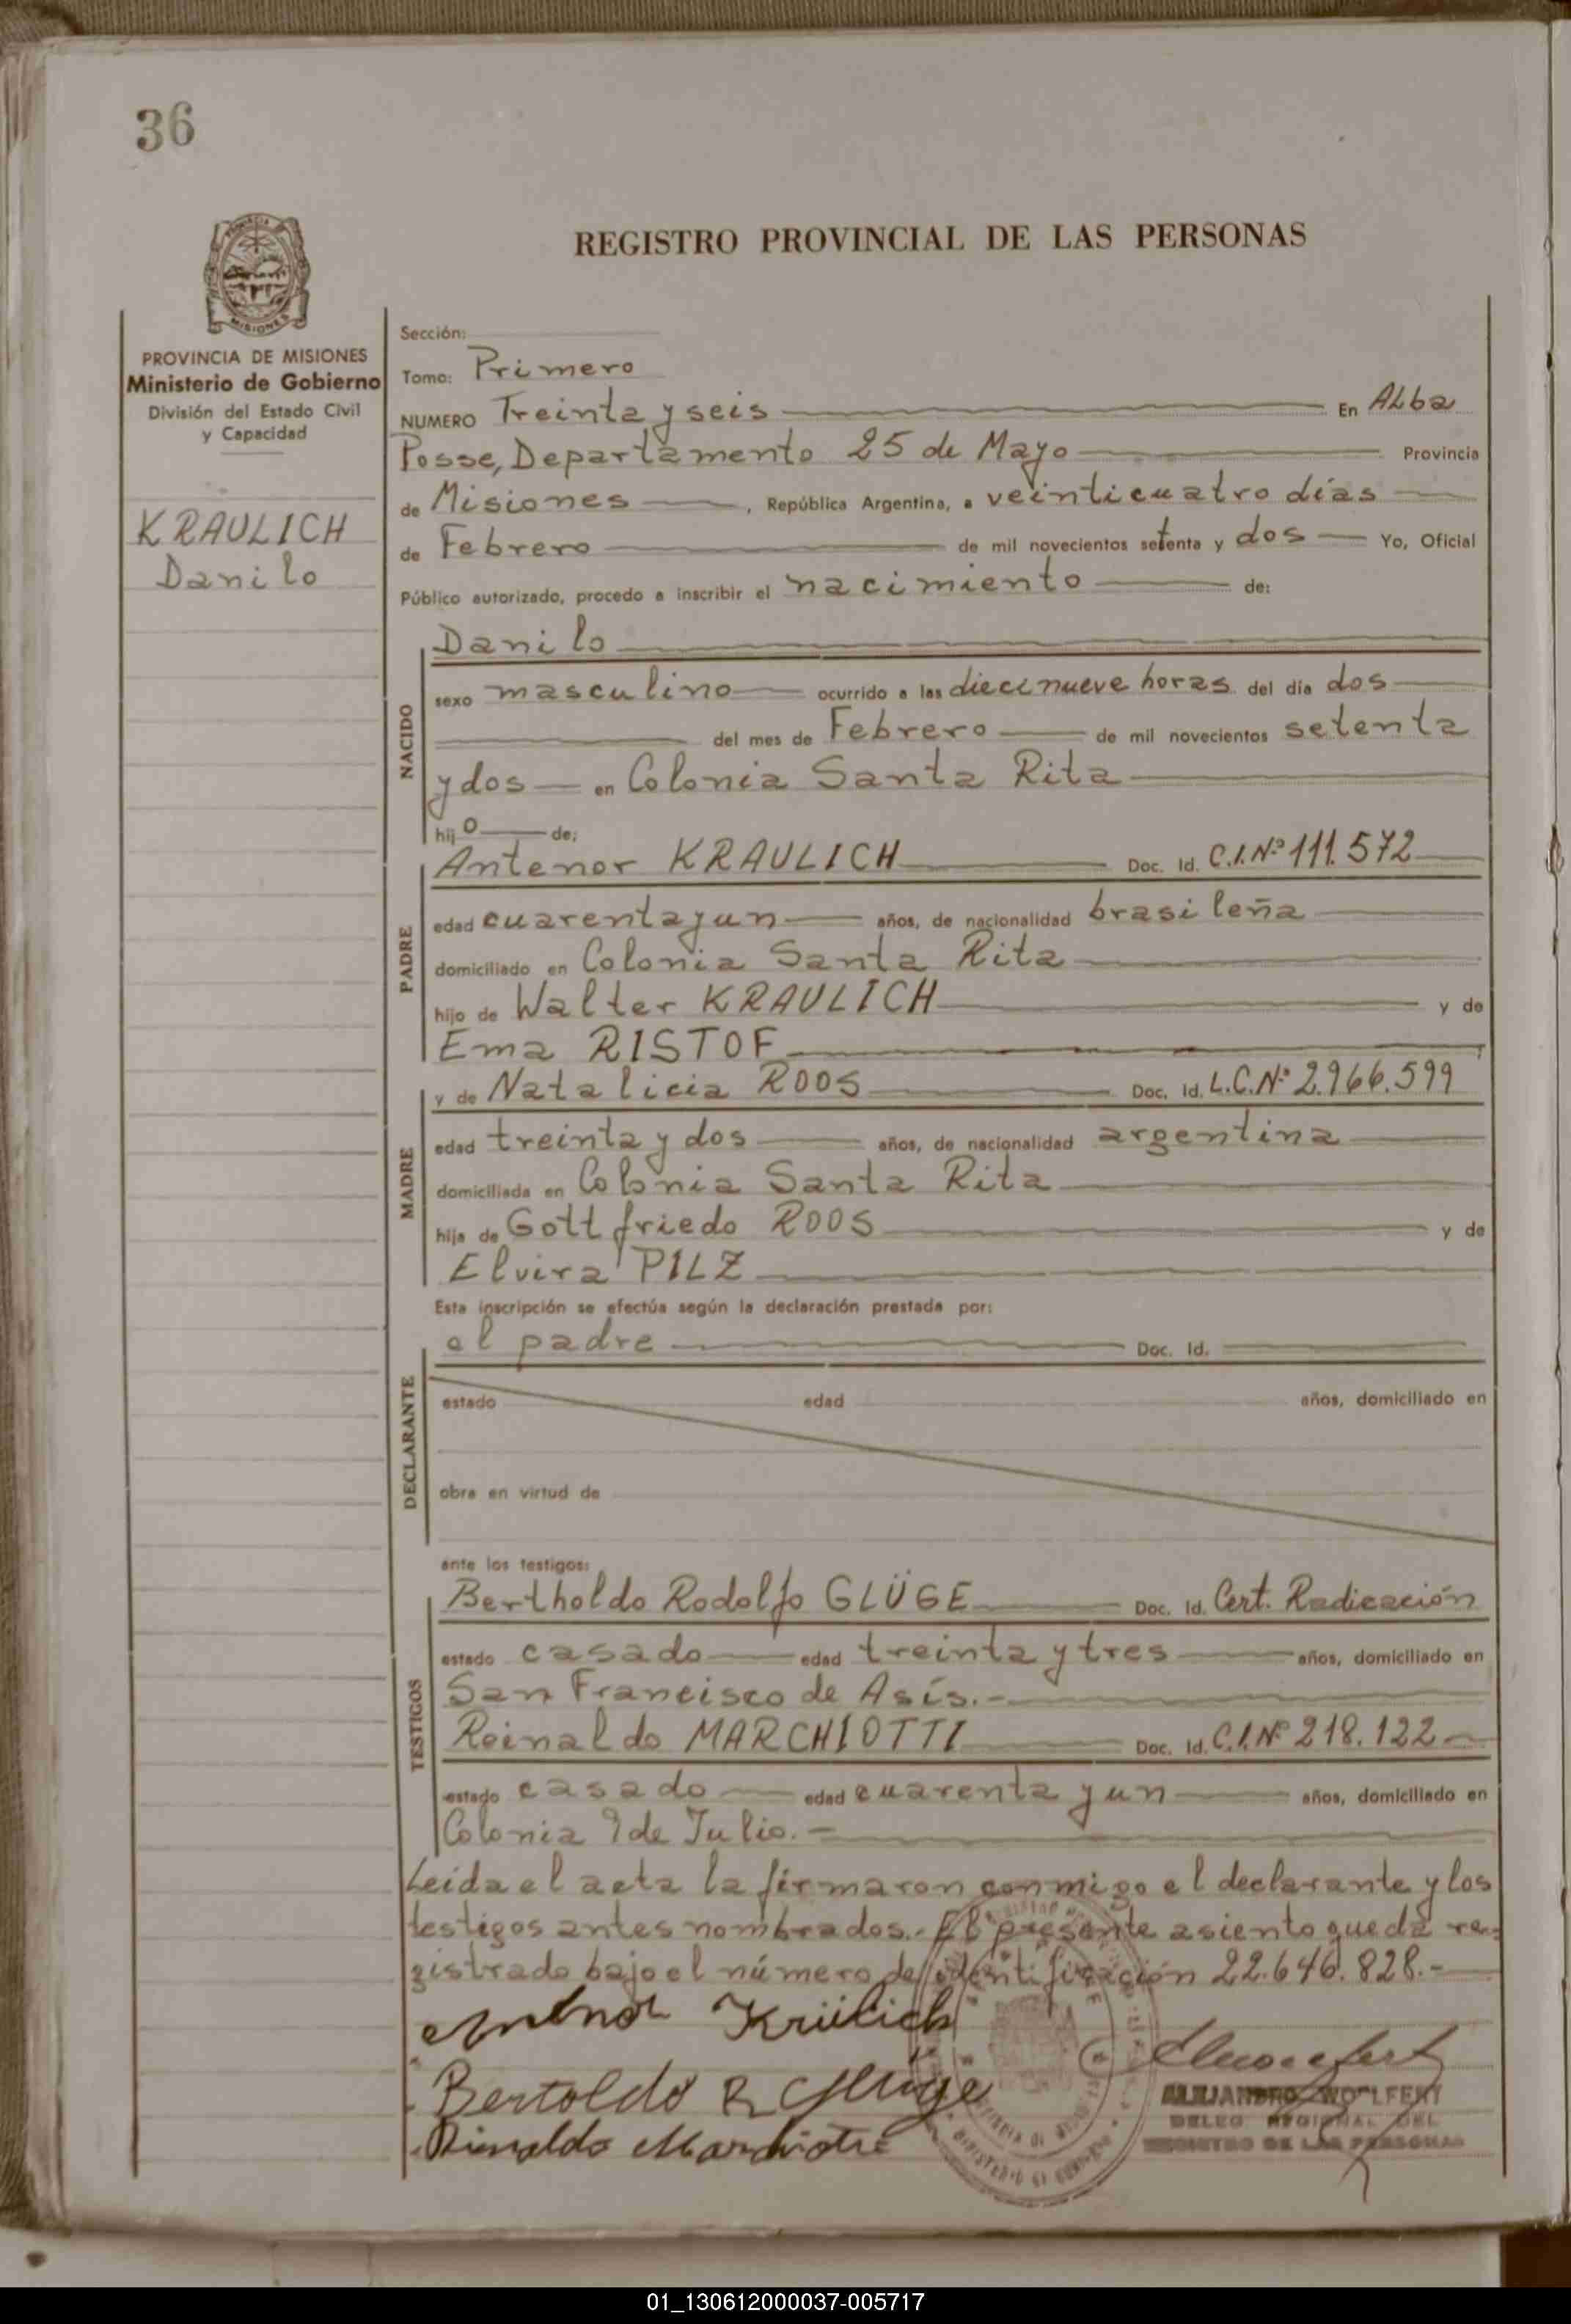 36
REGISTRO PROVINCIAL DE LAS PERSONAS
PROVINCIA DE MISIONES
Ministerio de Gobierno
División del Estado Civil
y Capacidad
KRAULICH
Danilo
Sección:
Tomo: Primero
NUMERO Treinta y seis En ALba
Posse, Departamento 25 de Mayo Provincia
de Misiones, República Argentina, a veinticuatro días
de Febrero de mil novecientos setenta y dos Yo, Oficial
Público autorizado, procedo a inscribir el nacimiento de:
NACIDO
Danilo
sexo masculino ocurrido a las diecinueve horas del día dos
del mes de Febrero de mil novecientos setenta
y dos en Colonia Santa Rita
hijo de:
PADRE
Antenor KRAULICH Doc. Id. C.I.Nº 111.572
edad cuarenta y un años, de nacionalidad brasileña
domiciliado en Colonia Santa Rita
hijo de Walter KRAULICH y de
Ema RISTOF
MADRE
y de Natalicia ROOS Doc. Id. L.C.Nº 2.966.599
edad treinta y dos años, de nacionalidad argentina
domiciliada en Colonia Santa Rita
hija de Gottfriedo ROOS y de
Elvira PILZ
Esta inscripción se efectúa según la declaración prestada por:
DECLARANTE
el padre Doc. Id.
estado edad años, domiciliado en
obra en virtud de
ante los testigos:
TESTIGOS
Bertholdo Rodolfo GLÜGE Doc. Id. Cert. Radicación
estado casado edad treinta y tres años, domiciliado en
San Francisco de Asís.-
Reinaldo MARCHIOTTI Doc. Id. C.I.Nº 218.122
estado casado edad cuarenta y un años, domiciliado en
Colonia 9 de Julio.-
Leida el acta la firmaron conmigo el declarante y los
testigos antes nombrados.- El presente asiento queda re-
gistrado bajo el número de identificación 22.646.828.-
Krülich
Bertoldo R Glüge
ALEJANDRO WOLFERT
DELEG REGIONAL DEL
REGISTRO DE LAS PERSONAS
01_130612000037-005717